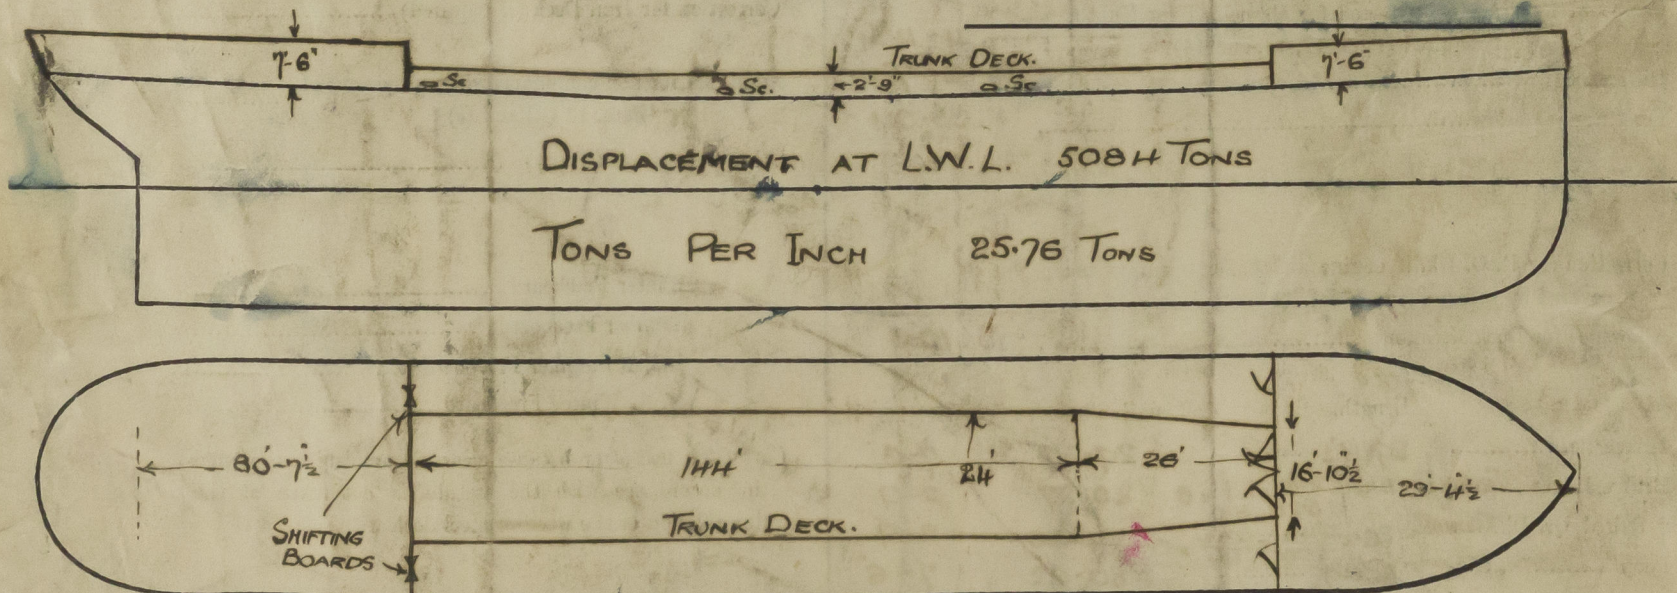 7'-6"
TRUNK DECK.
7'-6"
Sc
Sc.
2'-9"
Sc.
DISPLACEMENT AT L.W.L. 5084 TONS
TONS PER INCH 25·76 TONS
80'-7½"
144'
24'
26'
16'-10½"
29'-4½"
SHIFTING
BOARDS
TRUNK DECK.